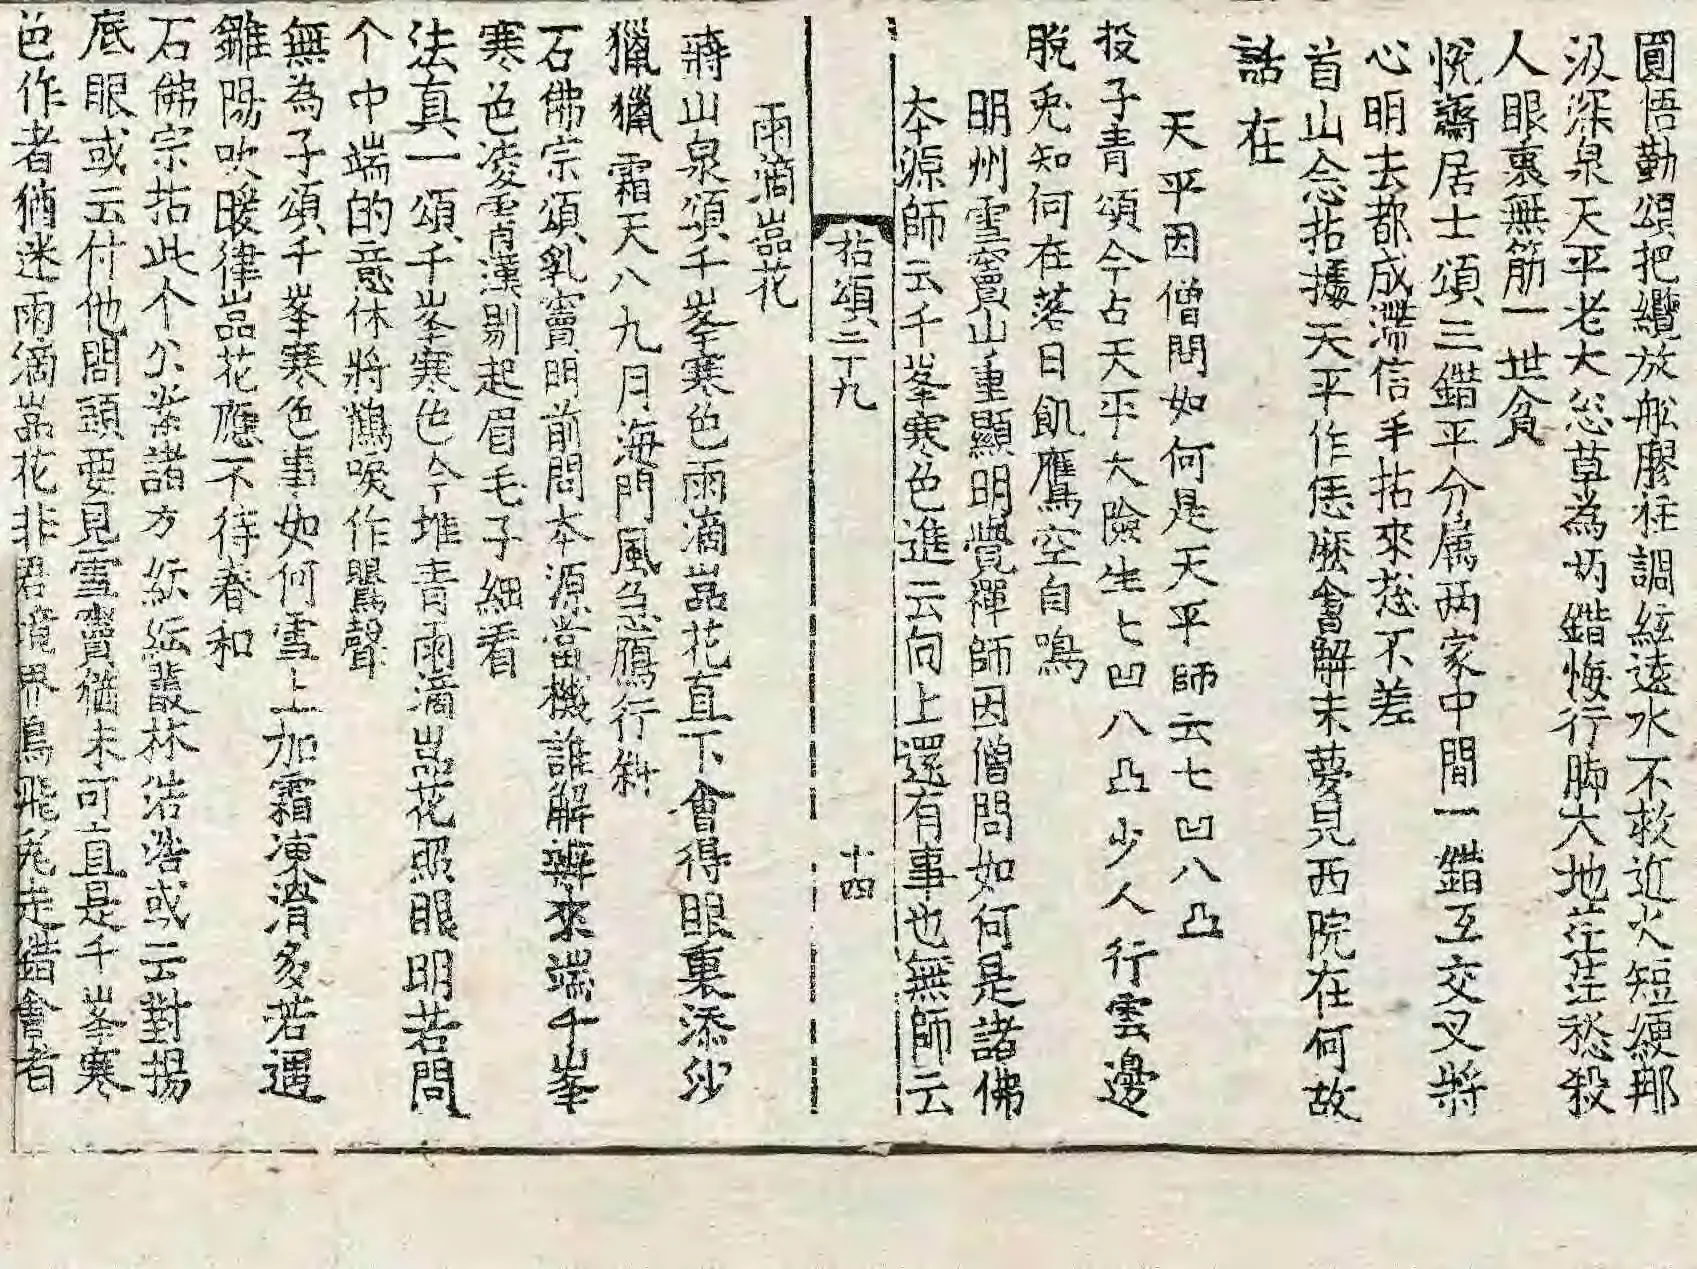 圓悟勤頌把纜放舩膠柱調絃遠水不救近火短綆那
汲深泉天平老大忩草為兩錯悔行脚大地茫茫愁殺
人眼裏無筋一世貧
悅齋居士頌三錯平分屬兩家中間一錯互交叉將
心明去都成滯信手拈來惹不差
首山念拈據天平作恁麽會解未夢見西院在何故
話在
天平因僧問如何是天平師云七凹八凸
投子青頌今古天平大險生七凹八凸少人行雲邊
脫兎知何在落日飢鷹空自鳴
明州雪竇山重顯明覺禪師因僧問如何是諸佛
本源師云千峯寒色進云向上還有事也無師云
拈頌二十九
十四
雨滴嵓花
蔣山泉頌千峯寒色雨滴嵓花直下會得眼裏添沙
獵獵霜天八九月海門風急鴈行斜
石佛宗頌乳竇門前問本源當機誰解辨來端千峯
寒色凌霄漢剔起眉毛子細看
法真一頌千峯寒色今堆青雨滴嵓花照眼明若問
个中端的意休將鶴唳作鸎聲
無為子頌千峯寒色事如何雪上加霜凍滑多若遇
雛陽吹暖律嵓花應不待春和
石佛宗拈此个公案諸方紜紜叢林浩浩或云對揚
底眼或云付他問頭要見雪竇猶未可直是千峯寒
色作者猶迷雨滴嵓花非君境界烏飛兎走錯會者